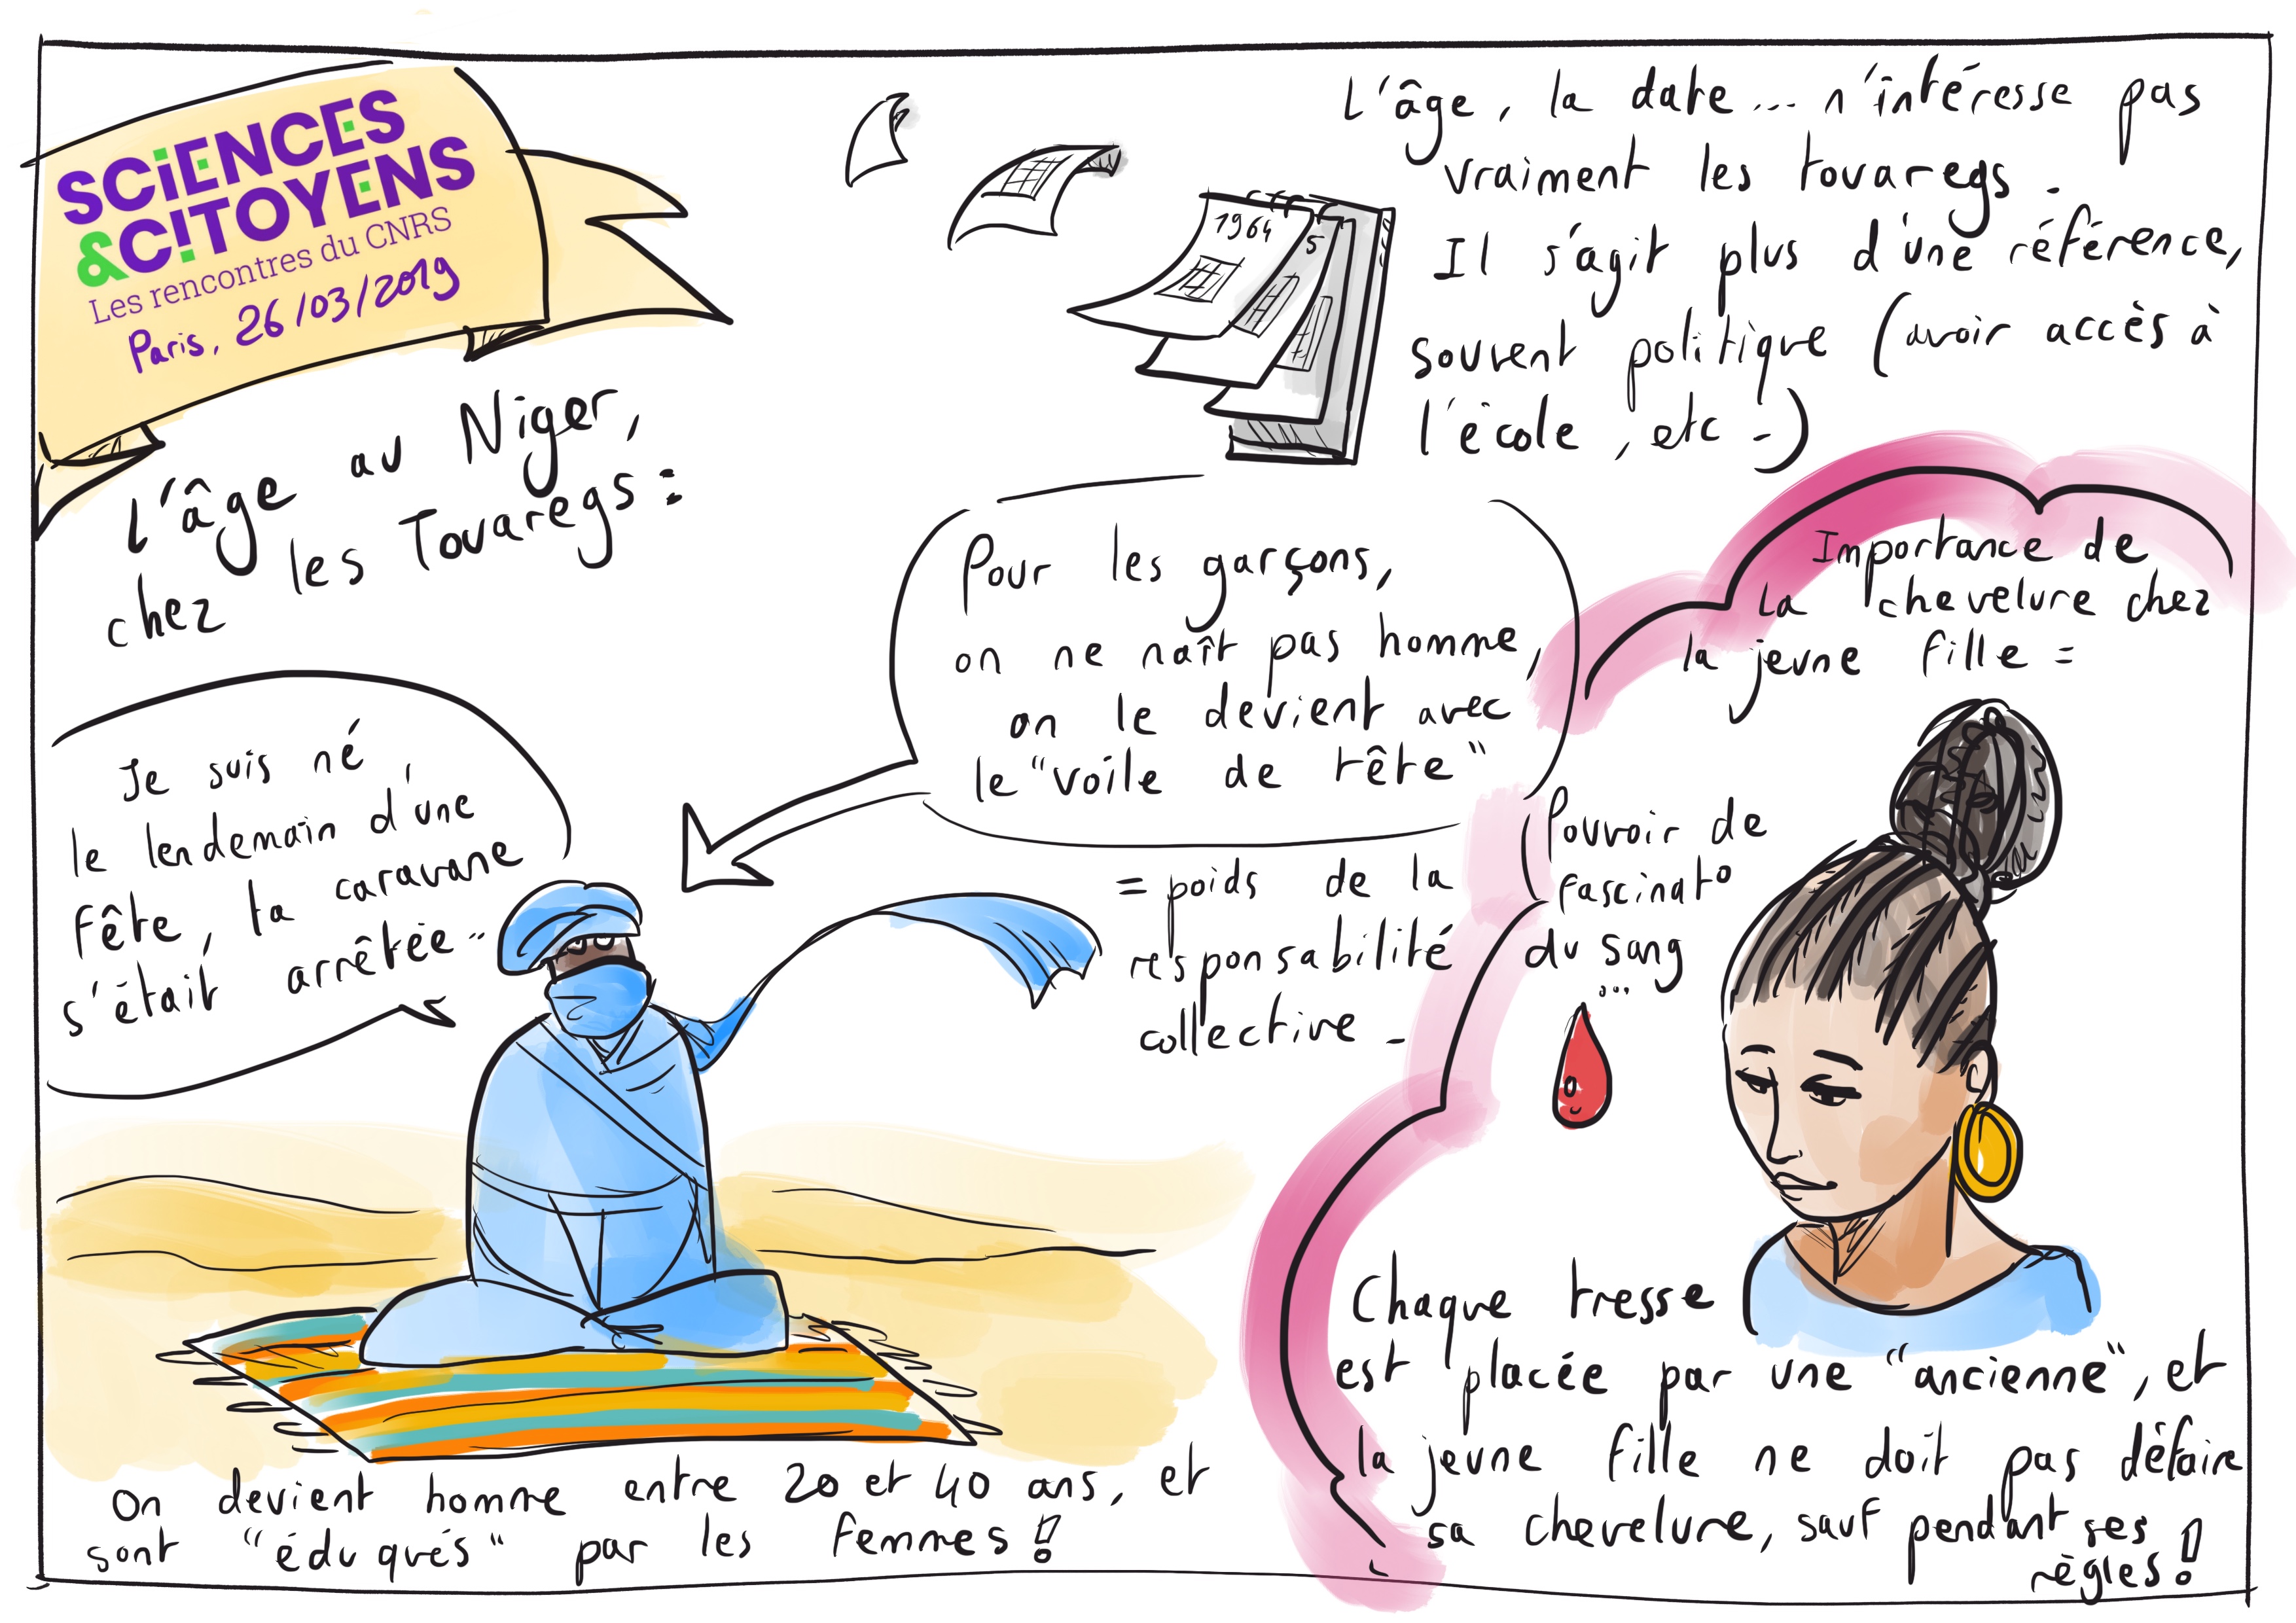 SCiENCES
&C!TOYENS
Les rencontres du CNRS
Paris, 26/03/2019
L'âge au Niger,
chez les Touaregs :
L'âge, la date... n'intéresse pas
vraiment les touaregs.
Il s'agit plus d'une référence,
souvent politique (avoir accès à
l'école, etc -)
1964
5
Je suis né
le lendemain d'une
fête, ta caravane
s'était arrêtée..
Pour les garçons,
on ne naît pas homme,
on le devient avec
le "voile de tête"
= poids de la
responsabilité
collective -
On devient homme entre 20 et 40 ans, et
sont "éduqués" par les femmes !
Importance de
la chevelure chez
la jeune fille =
(Pouvoir de
fascinat°
du sang
...
Chaque tresse
est placée par une "ancienne", et
la jeune fille ne doit pas défaire
sa chevelure, sauf pendant ses
règles !